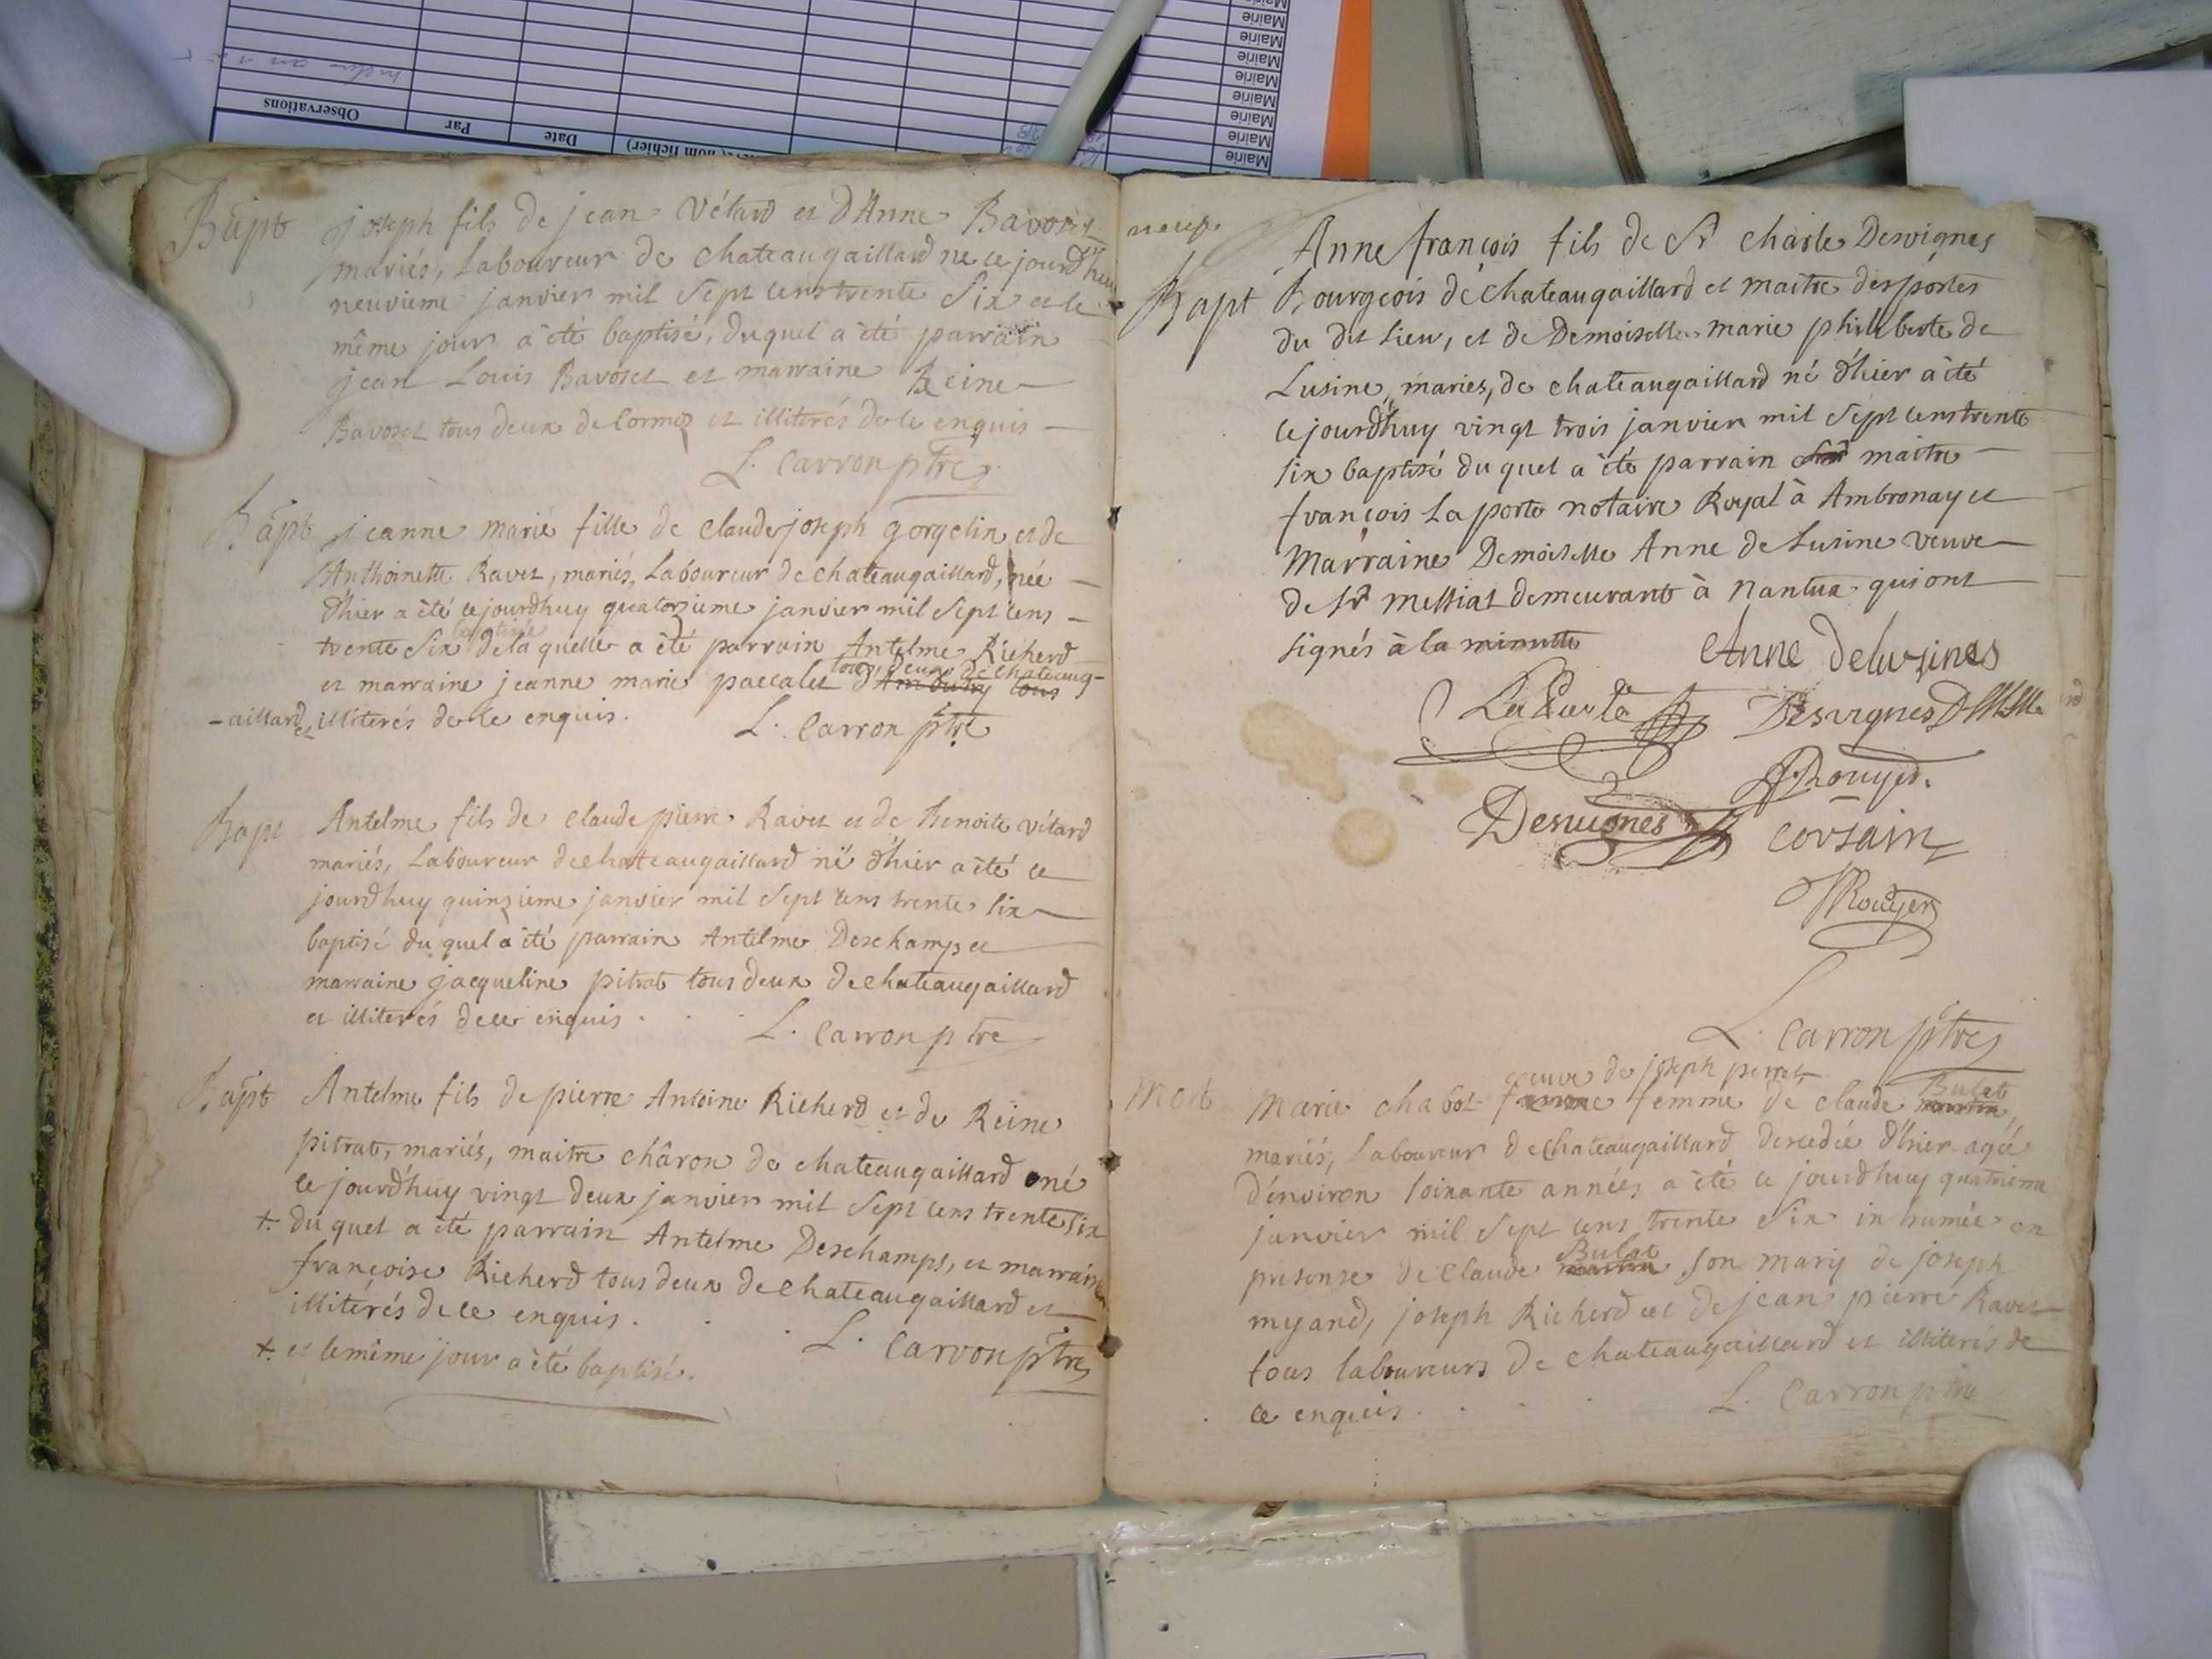 Mairie
Mairie
Mairie
Mairie
Mairie
Mairie
Mairie
Mairie
Observations
Par
Date
nom fichier)
Bapt joseph fils de jean Vétard et d'Anne Bavozet
mariés, Laboureur de chateaugaillard ne ce jourdhuy
neuvieme janvier mil sept cens trente six et le
même jour a été baptisé, duquel a été parrain
jean Louis Bavozet et marraine Reine
Bavozet tous deux de Cormoz et illiterés de ce enquis
L. Carron ptre
Bapt jeanne marie fille de claude joseph gorgelin et de
Anthoinette Ravet, mariés, Laboureur de chateaugaillard, née
d'hier a été ce jourdhuy quatorzieme janvier mil sept cens
baptisée
trente six de la quelle a été parrain Antelme Richerd
tous deux de chateaug-
et marraine jeanne marie paccalet d'Ambutry tous
-aillard et illiterés de ce enquis.
L. Carron ptre
Bapt Antelme fils de claude pierre Ravet et de Benoite vétard
mariés, Laboureur de chateaugaillard né d'hier a été ce
jourdhuy quinzieme janvier mil sept cens trente six
baptisé du quel a été parrain Antelme Deschamps et
marraine jacqueline pitrat tous deux de chateaugaillard
et illiterés de ce enquis . . .
L. Carron ptre
Bapt Antelme fils de pierre Antoine Richerd et de Reine
pitrat, mariés, maitre châron de chateaugaillard né
ce jourdhuy vingt deux janvier mil sept cens trente six
+. du quel a été parrain Antelme Deschamps, et marraine
françoise Richerd tous deux de chateaugaillard et
illitérés de ce enquis . . .
L. Carron ptre
+. et le même jour a été baptisé.
Anne françois fils de Sr charle Desvignes
Bapt Bourgeois de chateaugaillard et maitre des postes
du dit lieu, et de Demoiselle marie philiberte de
Lusine, mariés, de chateaugaillard né d'hier a été
ce jourdhuy vingt trois janvier mil sept cens trente
six baptisé du quel a été parrain maitre
françois La porte notaire Royal à Ambronay et
Marraine Demoiselle Anne de Lusine veuve
de Sr Messiat demeurant à Nantua qui ont
signés à la minutte
Anne delusines
LaPorte
Desvignes
Rouyer
Desvignes
corsain
Rouyer
L. Carron ptre
veuve de joseph perrat
Bulat
Mort Marie chabot femme de claude
mariés, Laboureur de chateaugaillard decedée d'hier agée
d'environ soixante années a été ce jourdhuy quatrieme
janvier mil sept cens trente six inhumée en
Bulat
presense de claude son mary de joseph
myand, joseph Richerd et de jean pierre Ravet
tous laboureurs de chateaugaillard et illiterés de
ce enquis . . .
L. Carron ptre